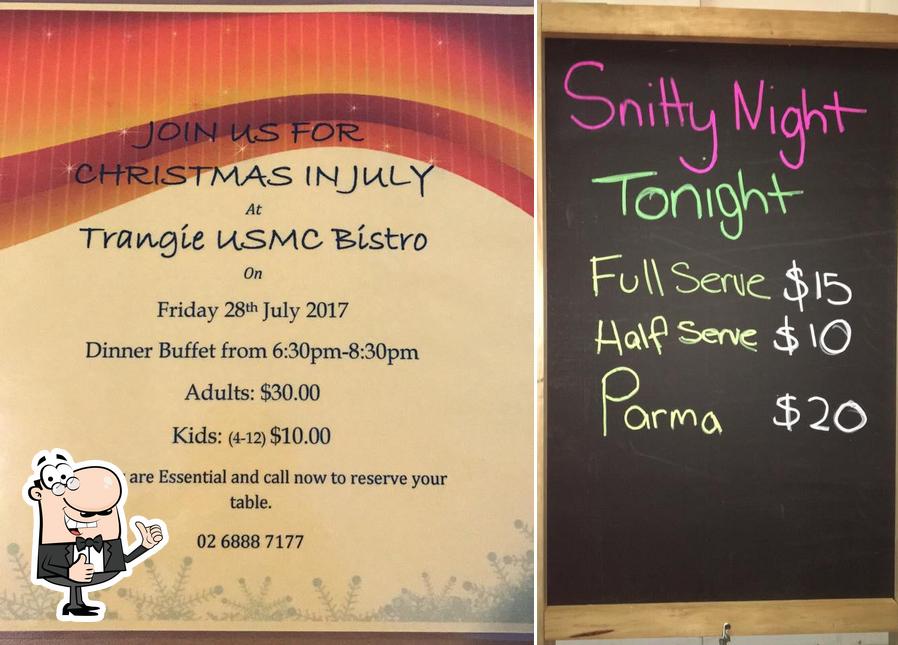 JOIN US FOR
CHRISTMAS IN JULY
At
Trangie USMC Bistro
On
Friday 28th July 2017
Dinner Buffet from 6:30pm-8:30pm
Adults: $30.00
Kids: (4-12) $10.00
are Essential and call now to reserve your
table.
02 6888 7177
Snitty Night
Tonight
Full Serve $15
Half Serve $10
Parma $20